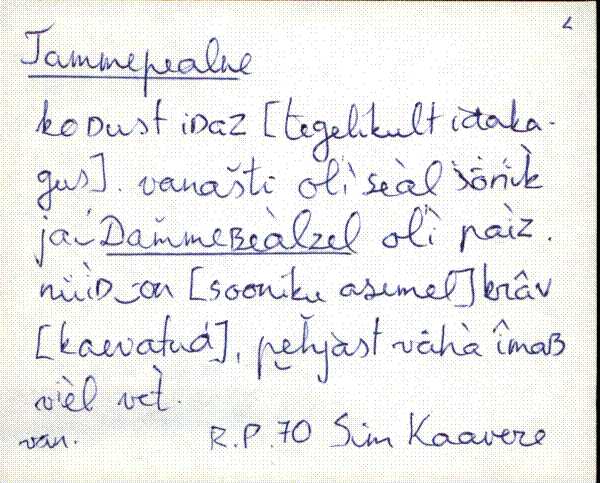 Tammepealne
koDust iDaz [tegelikult idaka-
gus]. vanašti oli seàl sònik
jaí Dam̆meBeàlzel olì pàiz.
nüiD on [sooniku asemel] krâv
[kaevatud], pehjàst vähà îmaB
vièl vet.
van. R.P. 70 Sim Kaavere